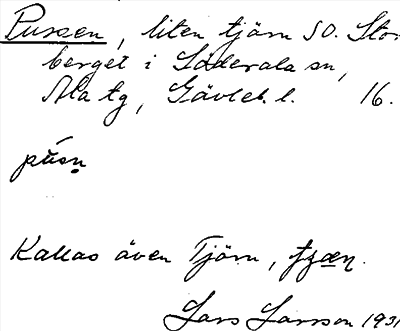 Pussen, liten tjärn SO. Stor
berget i Söderala sn,
Ala tg, Gävleb. l. 16.
púsn̥
Kallas även Tjärn,
Lars Larsson 1931